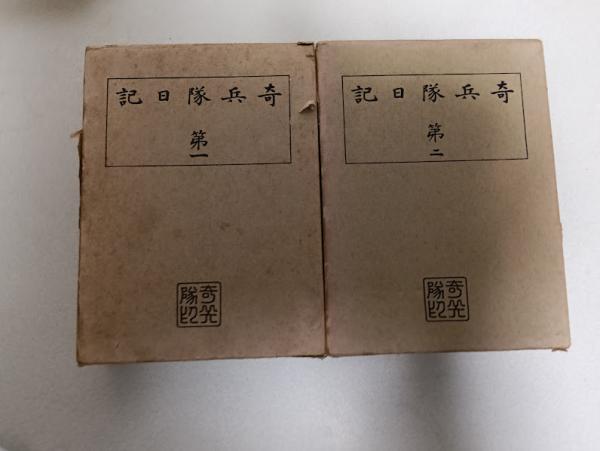 奇兵隊日記
第一
奇兵
隊印
奇兵隊日記
第二
奇兵
隊印